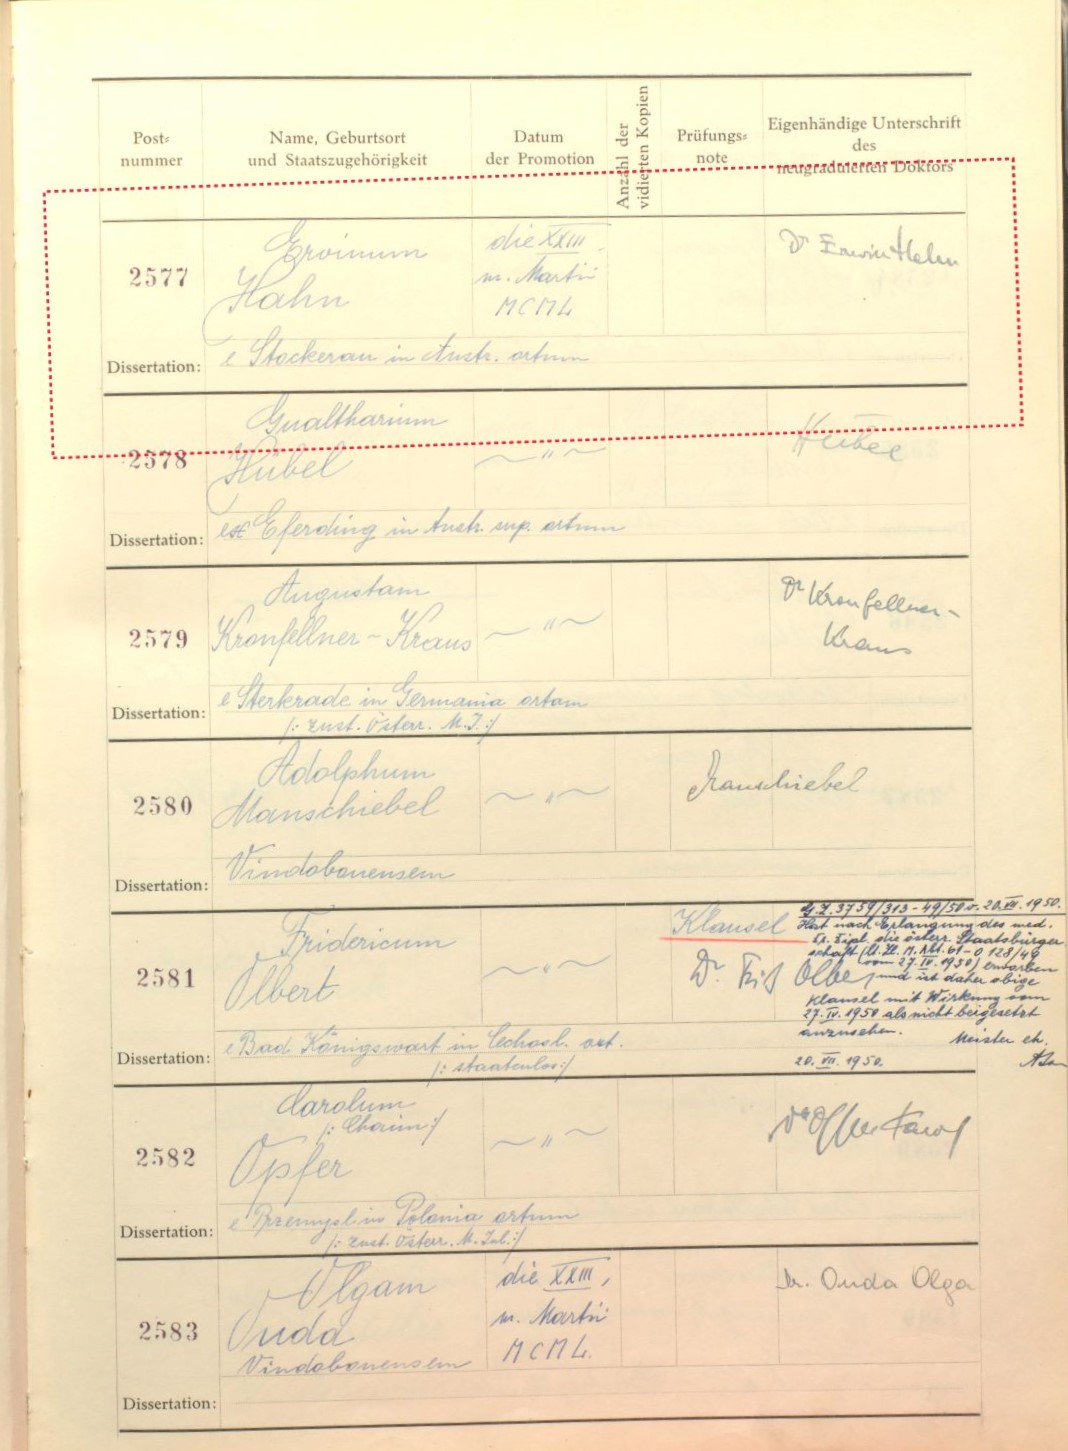 Post= nummer
Name, Geburtsort und Staatszugehörigkeit
Datum der Promotion
Anzahl der vidierten Kopien
Prüfungs= note
Eigenhändige Unterschrift des neugraduierten Doktors
2577
Ervinum
Hahn
die XXIII.
m. Martii
MCML
Dr Erwin Hahn
Dissertation: e Stockerau in Austr. ortum
2578
Gualtharium
Hübel
~ " ~
Hübel
Dissertation: ex Eferding in Austr. sup. ortum
2579
Augustam
Kronfellner-Kraus
~ " ~
Dr Kronfellner-
Kraus
Dissertation: e Sterkrade in Germania ortam
/: zust. Österr. M.I. :/
2580
Adolphum
Manschiebel
~ " ~
Manschiebel
Dissertation: Vindobonensem
2581
Fridericum
Olbert
~ " ~
Klausel
Dr. Fritz Olbert
G.Z. 3759/313-49/50 v. 20.VII.1950.
Hat nach Erlangung des med.
Dr. Dipl. die österr. Staatsbürger
schaft (M.Abt. 61-O 128/49
vom 27.IV.1950) erworben
und ist daher obige
Klausel mit Wirkung vom
27.IV.1950 als nicht beigesetzt
anzusehen.
Meister eh.
20.VII.1950.
Dissertation: e Bad Königswart in Cechosl. ort.
/: staatenlos :/
2582
Carolum
/: Chaim :/
Opfer
~ " ~
Dr Opfer Karol
Dissertation: e Przemysl in Polonia ortum
/: zust. Österr. M. Inl. :/
2583
Olgam
Ouda
Vindobonensem
die XXIII,
m. Martii
MCML.
Dr. Ouda Olga
Dissertation: